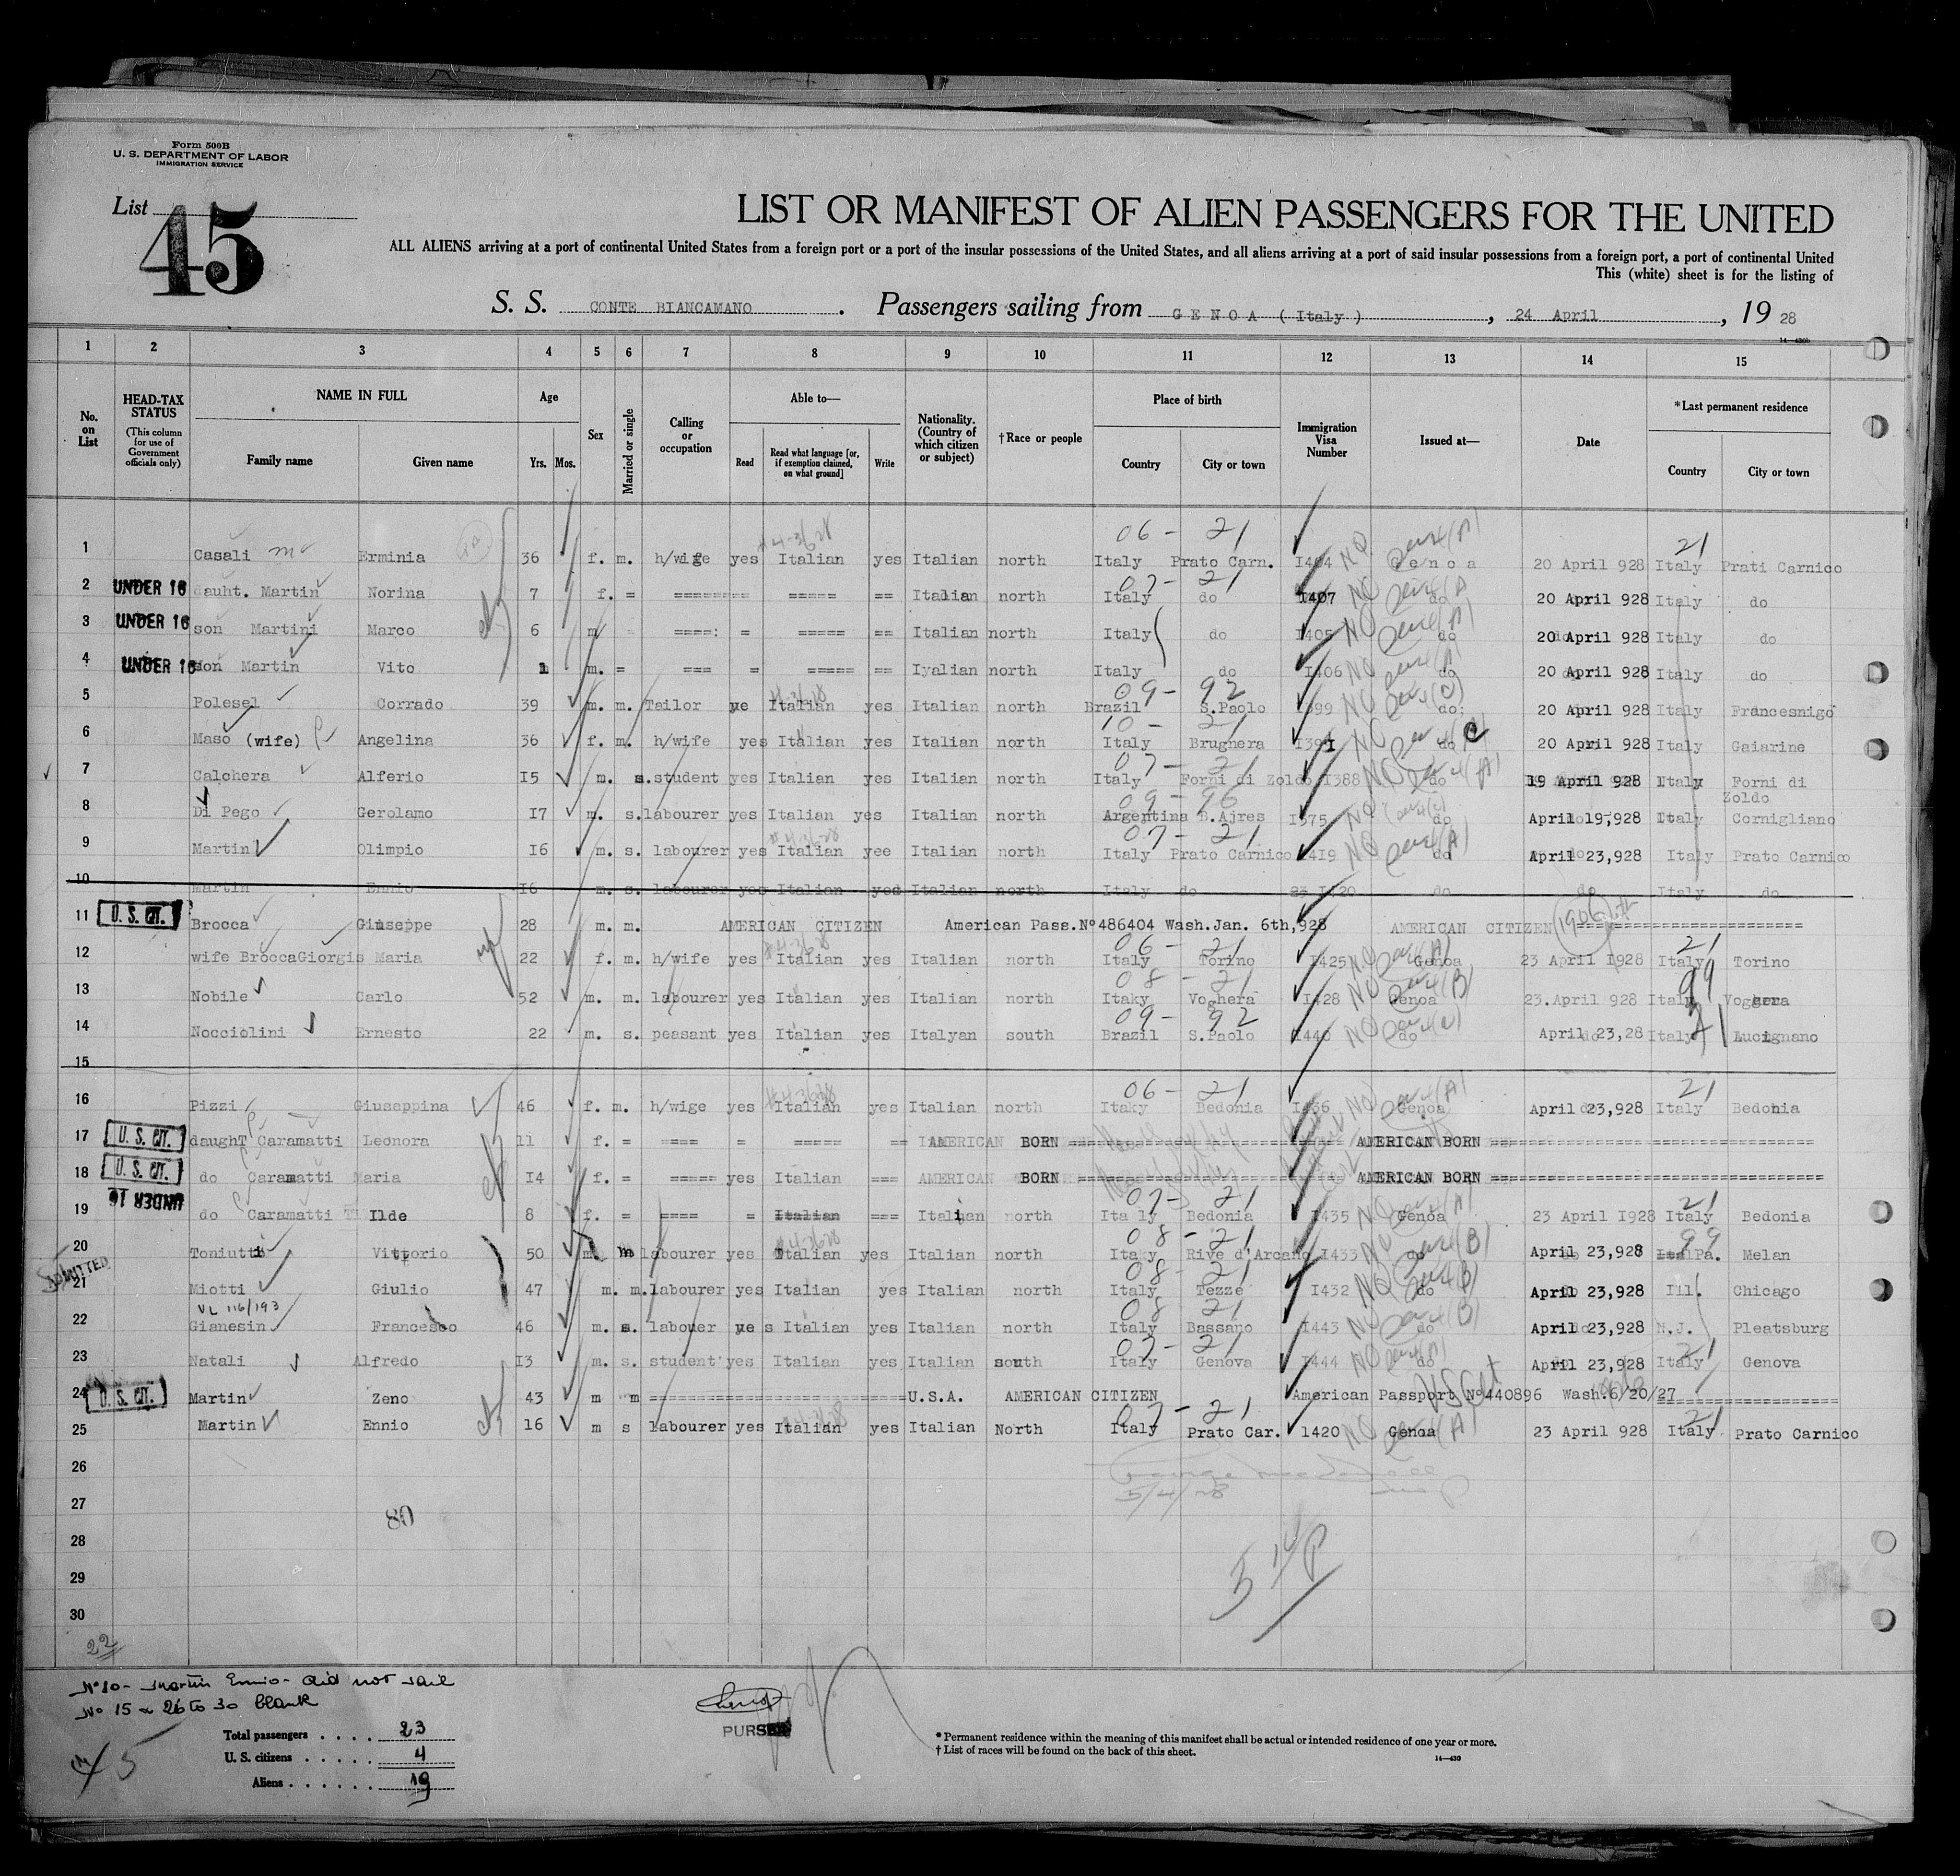 Form 500B
U. S. DEPARTMENT OF LABOR
IMMIGRATION SERVICE
List 45
LIST OR MANIFEST OF ALIEN PASSENGERS FOR THE UNITED
ALL ALIENS arriving at a port of continental United States from a foreign port or a port of the insular possessions of the United States, and all aliens arriving at a port of said insular possessions from a foreign port, a port of continental United
This (white) sheet is for the listing of
S. S. CONTE BIANCAMANO . Passengers sailing from GENOA (Italy) , 24 April , 19 28
14—430b
1 2 3 4 5 6 7 8 9 10 11 12 13 14 15
No. on List
HEAD-TAX STATUS (This column for use of Government officials only)
NAME IN FULL
Family name Given name
Age
Yrs. Mos.
Sex
Married or single
Calling or occupation
Able to—
Read Read what language [or, if exemption claimed, on what ground] Write
Nationality. (Country of which citizen or subject)
†Race or people
Place of birth
Country City or town
Immigration Visa Number
Issued at—
Date
*Last permanent residence
Country City or town
06 - 21 21
1 Casali Erminia 36 f. m. h/wife yes Italian yes Italian north Italy Prato Carn. Genoa 20 April 928 Italy Prati Carnico
07 - 21
2 UNDER 16 dauht. Martin Norina 7 f. = ======== ===== == Italian north Italy do 1407 do 20 April 928 Italy do
3 UNDER 16 son Martini Marco 6 m ====: = ===== == Italian north Italy do 1405 do 20 April 928 Italy do
4 UNDER 16 son Martin Vito 1 m. = === = ===== == Iyalian north Italy do 1406 do 20 April 928 Italy do
09 - 92
5 Polesel Corrado 39 m. m. Tailor ye Italian yes Italian north Brazil S.Paolo do: 20 April 928 Italy Francesnigo
10 - 21
6 Maso (wife) Angelina 36 f. m. h/wife yes Italian yes Italian north Italy Brugnera do 20 April 928 Italy Gaiarine
07 - 21
7 Calchera Alferio I5 m. s. student yes Italian yes Italian north Italy Forni di Zoldo I388 do 19 April 928 Italy Forni di Zoldo
09 - 96
8 Di Pego Gerolamo I7 m. s. labourer yes Italian yes Italian north Argentina B.Ajres I375 do April 19,928 Italy Cornigliano
07 - 21
9 Martin Olimpio I6 m. s. labourer yes Italian yee Italian north Italy Prato Carnico 1419 do April 23,928 Italy Prato Carnico
10 Martin Ennio I6 m. s. labourer yes Italian yes Italian north Italy do 1420 do do Italy do
11 U. S. CIT. Brocca Giuseppe 28 m. m. AMERICAN CITIZEN American Pass.Nº486404 Wash.Jan. 6th,928 AMERICAN CITIZEN 1906 ========================
06 - 21 21
12 wife BroccaGiorgis Maria 22 f. m. h/wife yes Italian yes Italian north Italy Torino I425 Genoa 23 April 1928 Italy Torino
08 - 21 99
13 Nobile Carlo 52 m. m. labourer yes Italian yes Italian north Itaky Voghera I428 Genoa 23.April 928 Italy Voghera
09 - 92 21
14 Nocciolini Ernesto 22 m. s. peasant yes Italian yes Italyan south Brazil S.Paolo do April 23,28 Italy Lucignano
15
06 - 21 21
16 Pizzi Giuseppina 46 f. m. h/wige yes Italian yes Italian north Itaky Bedonia Genoa April 23,928 Italy Bedonia
17 U. S. CIT. daughT Caramatti Leonora 11 f. = ==== = ===== == AMERICAN BORN AMERICAN BORN
18 U. S. CIT. do Caramatti Maria I4 f. = ===== yes Italian === AMERICAN BORN AMERICAN BORN
07 - 21 21
19 UNDER 16 do Caramatti Ilde 8 f. = ==== = Italian === Italian north Italy Bedonia I435 Genoa 23 April I928 Italy Bedonia
08 - 21 99
20 Toniutti Vittorio 50 m m labourer yes Italian yes Italian north Itaky Rive d'Arcano I433 do April 23,928 Pa. Melan
ADMITTED
08 - 21
21 Miotti Giulio 47 m. m. labourer yes Italian yes Italian north Italy Tezze I432 do April 23,928 Ill. Chicago
VL 116/193
08 21
22 Gianesin Francesco 46 m. s. labouer ye s Italian yes Italian north Italy Bassano I443 do April 23,928 N.J. Pleatsburg
07 - 21 21
23 Natali Alfredo I3 m. s. student yes Italian yes Italian south Italy Genova I444 do April 23,928 Italy Genova
24 U. S. CIT. Martin Zeno 43 m m ======================== U.S.A. AMERICAN CITIZEN American Passport Nº440896 Wash.6/20/27 ================
07 - 21 21
25 Martin Ennio 16 m s labourer yes Italian yes Italian North Italy Prato Car. 1420 Genoa 23 April 928 Italy Prato Carnico
26
5/4/28
27
80
28
29
30
22
Nº 10 - Martin Ennio - did not sail
No 15 & 26 to 30 blank
Total passengers . . . . 23
U. S. citizens . . . . . 4
Aliens . . . . . . 19
45
PURSER
* Permanent residence within the meaning of this manifest shall be actual or intended residence of one year or more.
† List of races will be found on the back of this sheet.
14—430